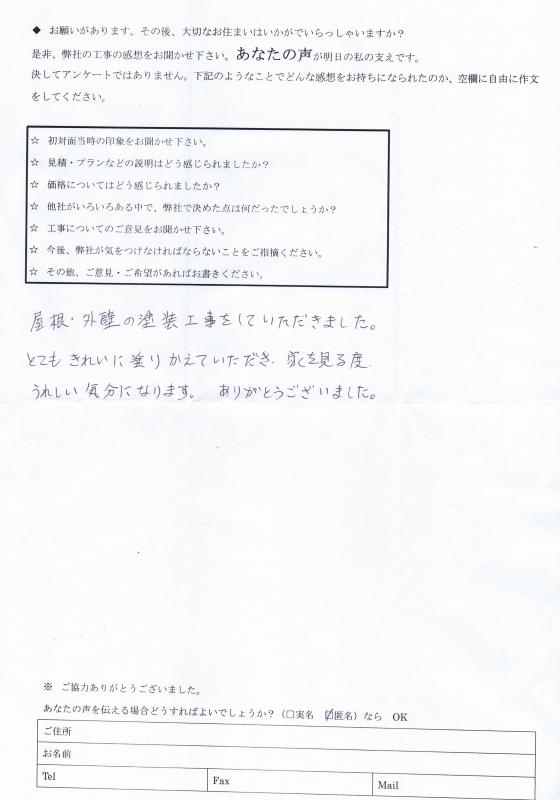 ◆ お願いがあります。その後、大切なお住まいはいかがでいらっしゃいますか？
是非、弊社の工事の感想をお聞かせ下さい。あなたの声が明日の私の支えです。
決してアンケートではありません。下記のようなことでどんな感想をお持ちになられたのか、空欄に自由に作文
をしてください。
☆ 初対面当時の印象をお聞かせ下さい。
☆ 見積・プランなどの説明はどう感じられましたか？
☆ 価格についてはどう感じられましたか？
☆ 他社がいろいろある中で、弊社で決めた点は何だったでしょうか？
☆ 工事についてのご意見をお聞かせ下さい。
☆ 今後、弊社が気をつけなければならないことをご指摘ください。
☆ その他、ご意見・ご希望があればお書きください。
屋根・外壁の塗装工事をしていただきました。
とても きれいに塗り かえていただき、家を見る度、
うれしい 気分になります。 ありがとうございました。
※ ご協力ありがとうございました。
あなたの声を伝える場合どうすればよいでしょうか？（□実名 ☑匿名）なら OK
ご住所
お名前
Tel Fax Mail